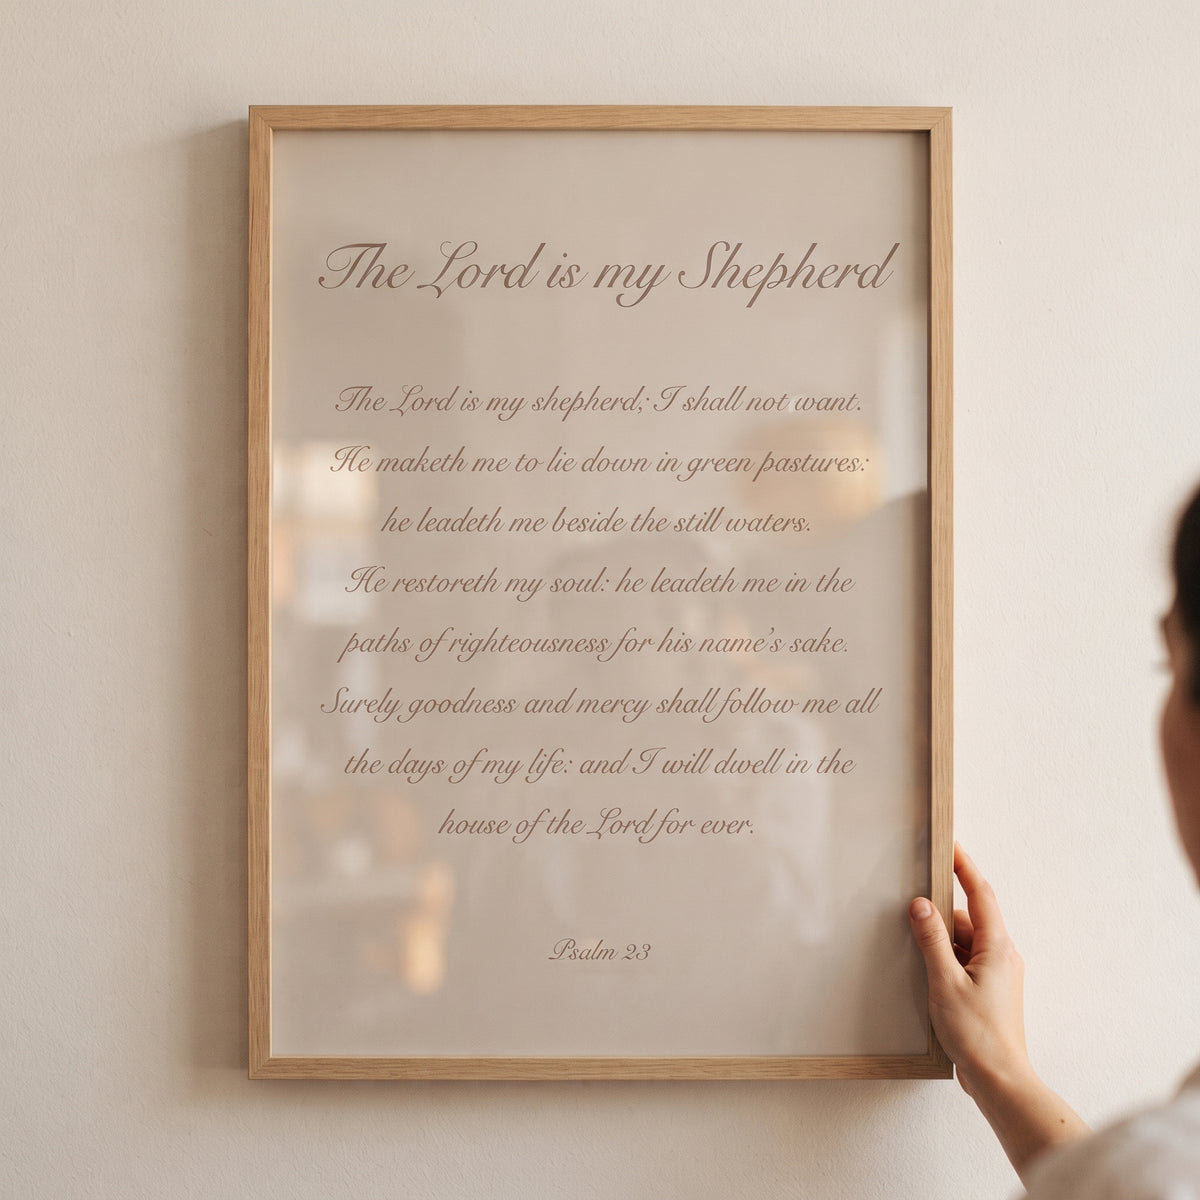 The Lord is my Shepherd
The Lord is my shepherd; I shall not want.
He maketh me to lie down in green pastures:
he leadeth me beside the still waters.
He restoreth my soul: he leadeth me in the
paths of righteousness for his name's sake.
Surely goodness and mercy shall follow me all
the days of my life: and I will dwell in the
house of the Lord for ever.
Psalm 23